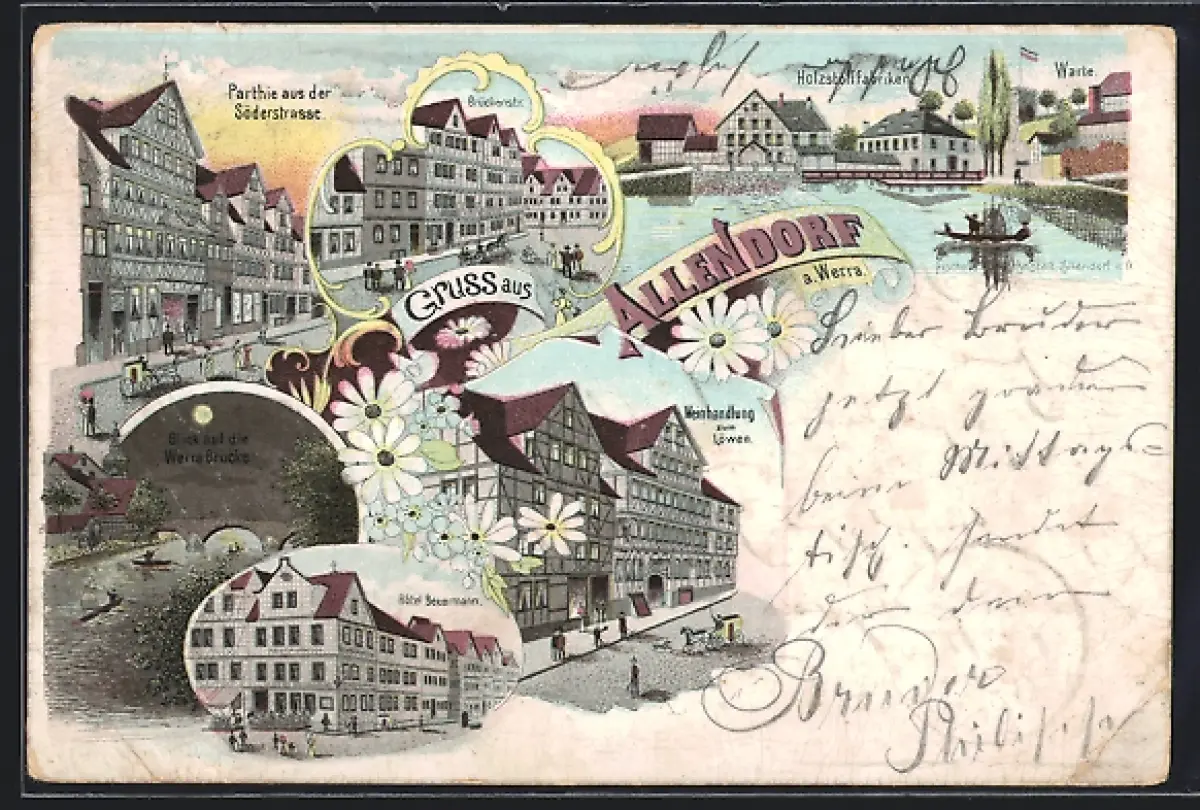 Parthie aus der
Söderstrasse.
Brückenstr.
Holzstofffabriken
Warte.
Gruss aus
ALLENDORF
a. Werra.
Blick auf die
Werra Brücke
Weinhandlung
zum
Löwen.
Hôtel Beuermann.
Lieber Bruder
jetzt
beim Mittags-
tisch. sendet
dir dein
Bruder